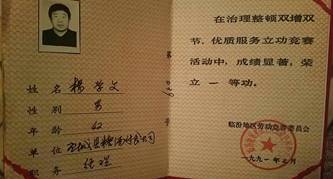 姓名 杨学文
性别 男
年龄 42
单位
职务 经理
在治理整顿双增双
节、优质服务立功竞赛
活动中，成绩显著，荣
立一等功。
临汾地区劳动竞赛委员会
一九九一年 月